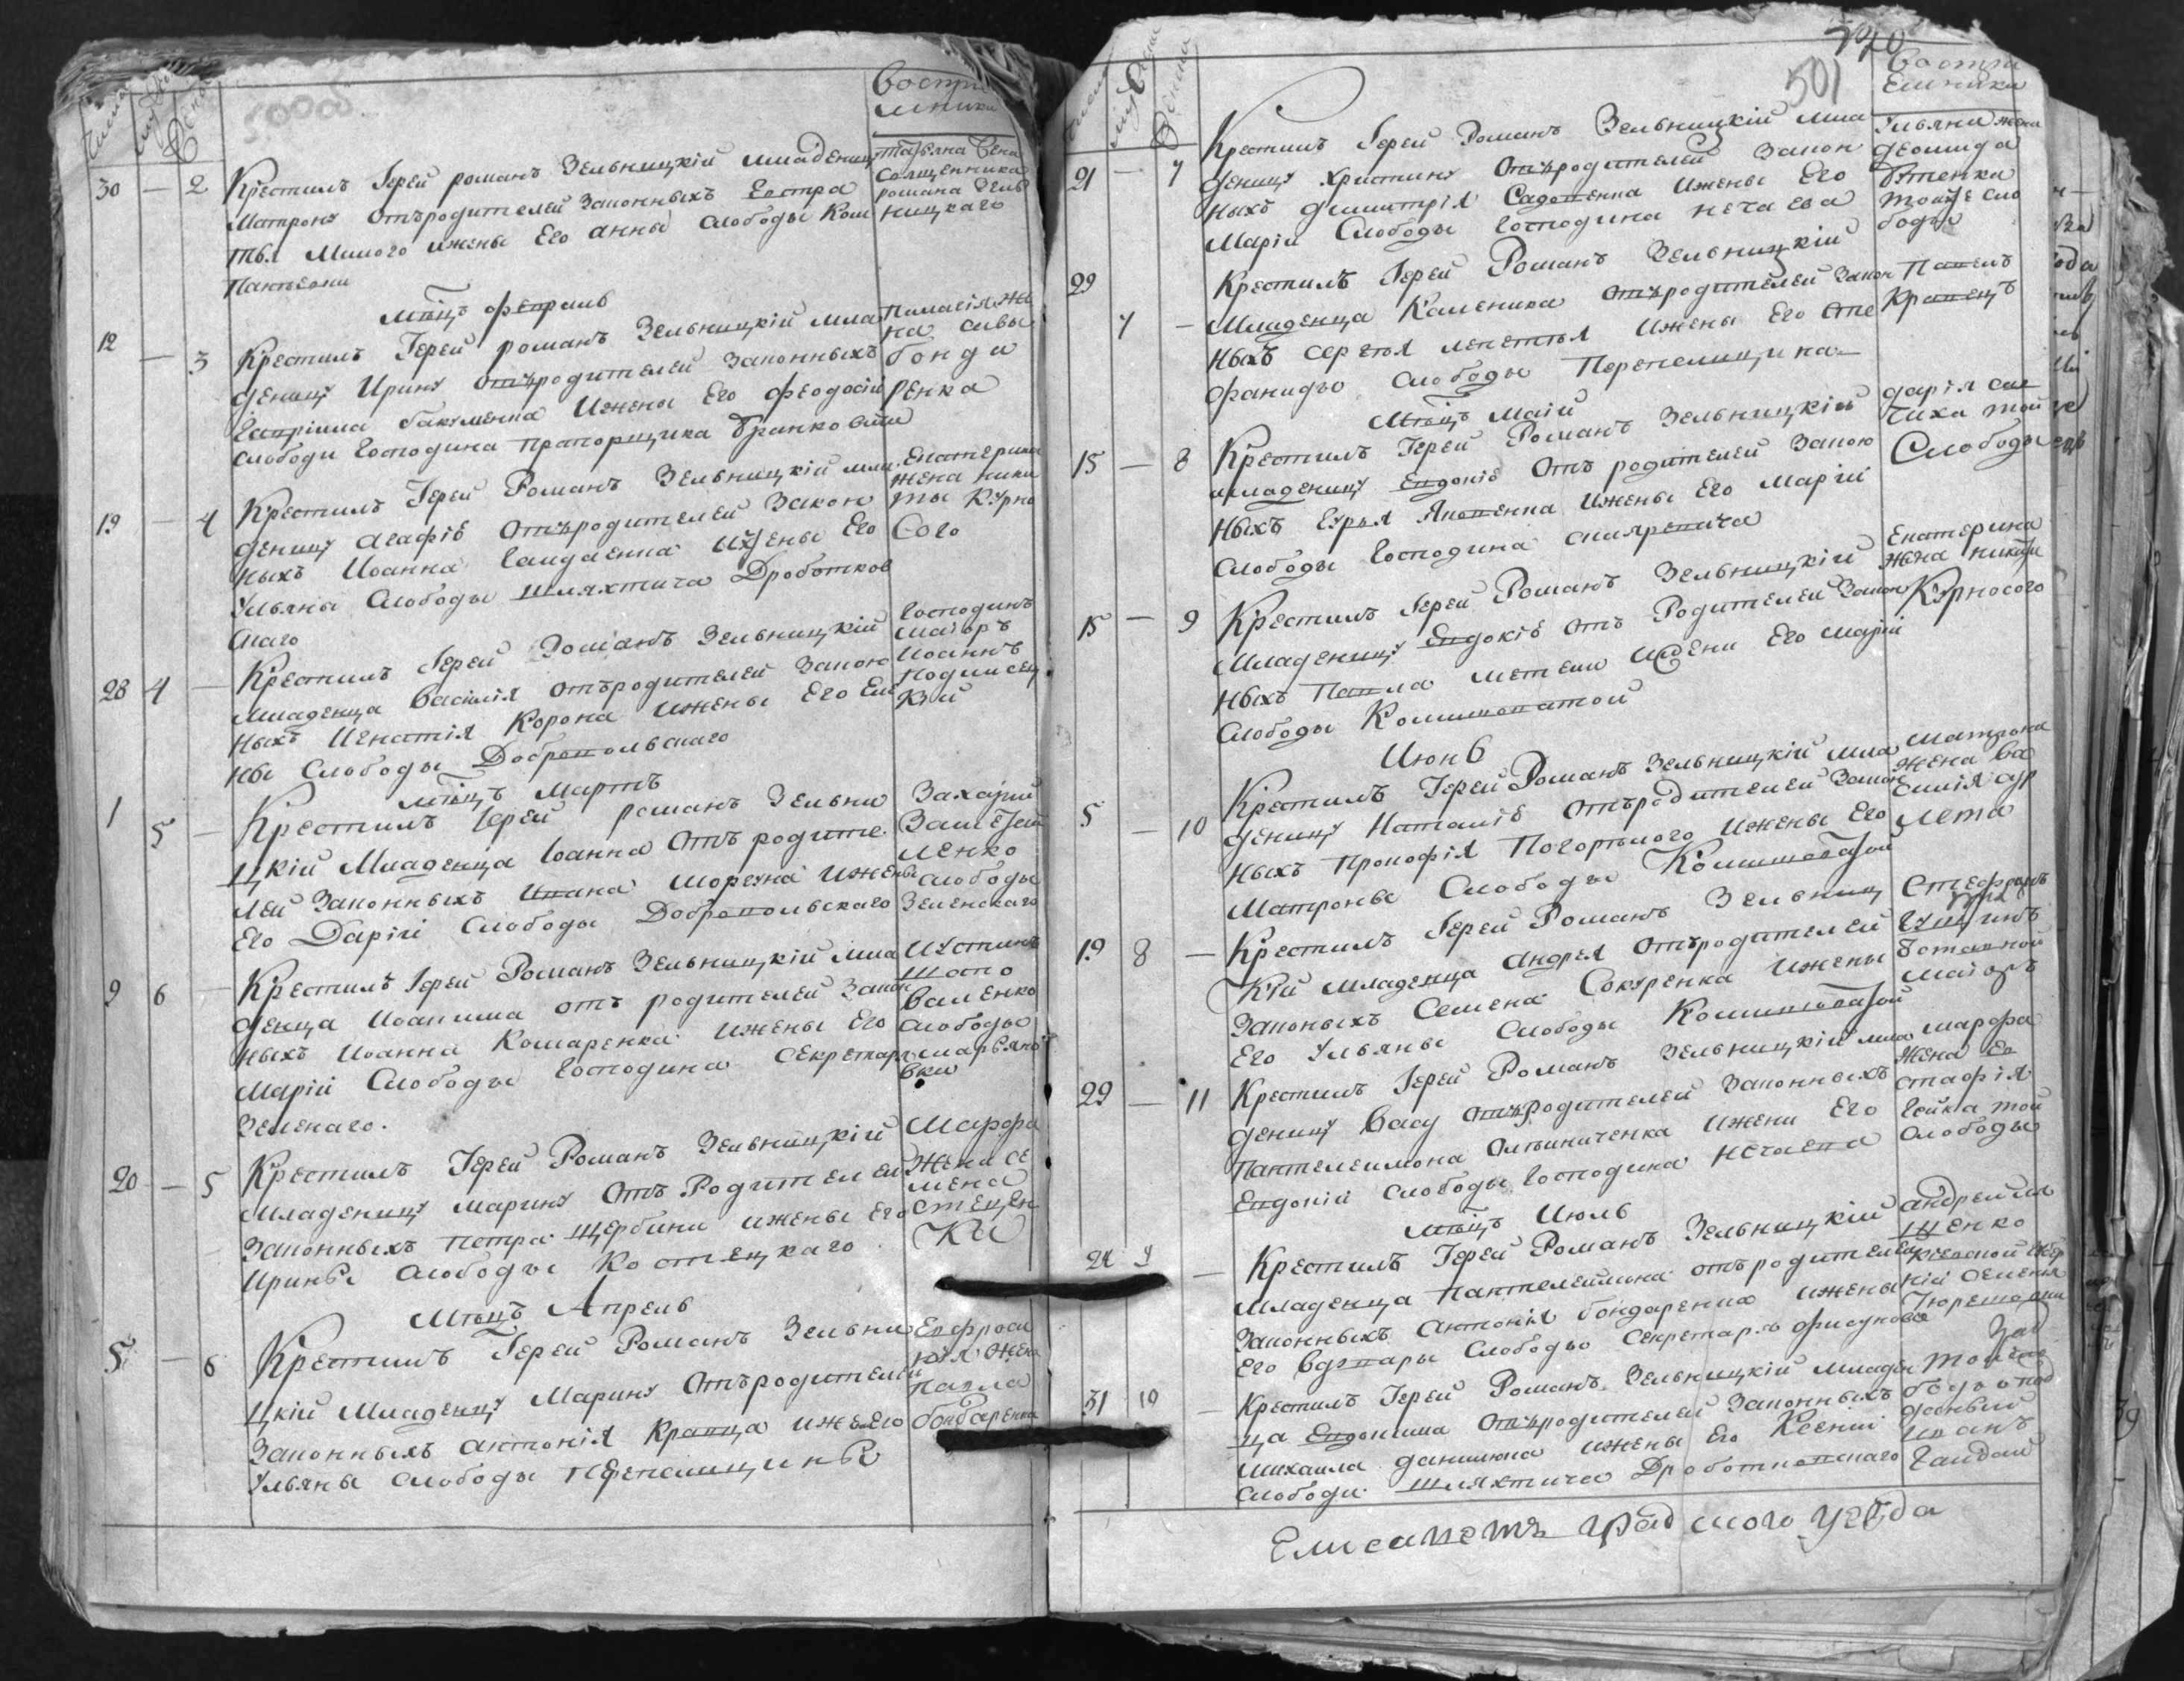 Числа
муж
Женск
Воспри
емники
30 — 2
Крестилъ Іерей романъ Зельницкій младеницу
Матрону отъродителей Законныхъ Евстра
тія Милого ижены Его анны Слободы Ком
Пантѣевки
татьяна Жена
Священника
романа Зель
ницкаго
Мѣцъ февраль
12 — 3
Крестилъ Іерей романъ Зельницкій мла
деницу Ирину отъродителей Законныхъ
Гавріила бакуменка Ижены Его феодосіи
Слободи Господина прапорщика бранковати
Палагія же
на савы
бонда
ренка
19 — 4
Крестилъ Іерей Романъ Зельницкій мла
деницу агафіѣ Отъродителей Закон
ныхъ Иоанна Гайдаенка Ижены Его
Ульяны Слободы шляхтича Дроботков
скаго
Екатерина
жена ники
ты Курно
Сого
28 4 —
Крестилъ Іерей Романъ Зельницкій
Младенца Василія отъродителей Законо
ныхъ Игнатія Корона ижены Его Еле
ны Слободы Добропольскаго
Господинъ
маіоръ
Иоаннъ
Подлисец
кій
Мѣцъ Мартъ
1 5 —
Крестилъ Іерей романъ Зельни
цкій Младенца Іоанна Отъ родите
лей Законныхъ Ивана Моргуна ижены
Его Даріи Слободы Добропольскаго
Захарій
ленко
слободы
Зеленскаго
9 6 —
Крестилъ Іерей Романъ Зельницкій мла
денца Иоакима отъ родителей Закон
ныхъ Иоанна Комаренка ижены Его
Маріи Слободы Господина Секретаря
Зеленаго.
Иустинъ
Шапо
валенко
слободы
марьяно
вки
20 — 5
Крестилъ Іерей Романъ Зельницкій
Младеницу Марину Отъ Родителей
Законныхъ петра Щербини ижены Его
Ирины слободы Костецкаго
Марфа
Жена се
мена
стецен
ка
Мѣцъ Апрель
5 — 6
Крестилъ Іерей Романъ Зельни
цкій Младеницу Марину Отъродителей
Законныхъ антонія Кравца иже Его
Ульяны слободы перепелицины
Евфроси
нія жена
павла
бондаренка
501
Числа
муж
Женски
Воспри
Емники
21 — 7
Крестилъ Іерей Романъ Зельницкій мла
деницу Христину Отъродителей Закон
ныхъ димитрія Садовенка Ижены Его
Маріи Слободы Господина нечаева
Ульяна жена
Леонида
бутенка
тояже сло
боды
29 7 —
Крестилъ Іерей Романъ Зельницкій
Младенца Каленика отъродителей Закон
ныхъ сергея лепетья Ижены Его сте
фаниды Слободы Перепелицина
Павелъ
Кравецъ
Мѣцъ Маій
15 — 8
Крестилъ Іерей Романъ Зельницкій
младеницу Евдокіѣ Отъ родителей Закою
ныхъ Гурья Яковенка Ижены Его Маріи
Слободы Господина скляревича
дарія сав
чиха той
Слободы
15 — 9
Крестилъ Іерей Романъ Зельницкій
Младеницу Евдокіѣ отъ Родителей Закон
ныхъ Павла метели иЖени Его маріи
Слободы Комишоватой
Екатерина
жена никиты
Курносого
Июнь
5 — 10
Крестилъ Іерей Романъ Зельницкій мла
деницу Наталіѣ Отъродителей Закон
ныхъ Прокофія Погорѣлого Ижены Его
Матроны Слободы Комишоватой
матрона
жена ва
силія сур
мета
19 8 —
Крестилъ Іерей Романъ Зельниц
Кій младенца андрея отъродителей
Законыхъ Семена Сокуренка Ижены
Его Ульяны Слободы Комишоватой
Стефанъ
маіоръ
29 — 11
Крестилъ Іерей Романъ Зельницкій мла
деницу Васу отъРодителей Законныхъ
Пантелеимона Олейниченка Ижени Его
Евдокіи слободы Господина нечаева
марфа
жена Ев
стафія
Гейка той
слободы
Мѣцъ Июль
24 9 —
Крестилъ Іерей Романъ Зельницкій
Младенца Пантелеймона отъродителей
Законныхъ антонія бондаренка ижены
Его Варвары Слободы секретаря фисунова
андрей ля
щенко
31 10 —
Крестилъ Іерей Романъ Зельницкій младен
ца Евдокима отъродителей Законныхъ
Михаила данилюка ижены Его Ксеніи
слободи шляхтича Дроботковскаго
Иванъ
Гайдай
Елисаветъ градского уезда